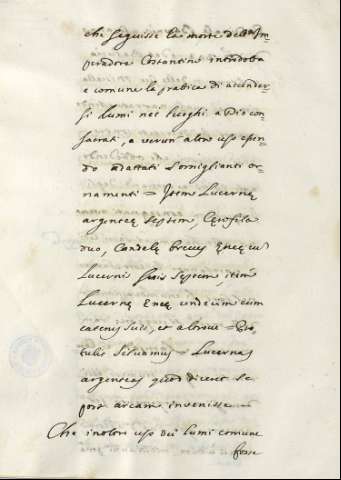 che seguisse la morte dell'Im-
peradore Costantino introdotta
e comune la pratica di accender-
si i lumi nei luoghi a Dio con-
sacrati, a verun altro uso essen-
do adattati somiglianti or-
namenti = Item Lucernę
argenteę septem, Cęrofala
duo, Candelę breves ęneę cu
Lucernis suis septem, item
Lucernę ęneę undecim cum
catenis suis, et altrove = Pro-
tulit Silvanus = Lucernas
argenteas quod diceret se
post arcam invenisse =
Che inoltre uso dei lumi comune
fosse